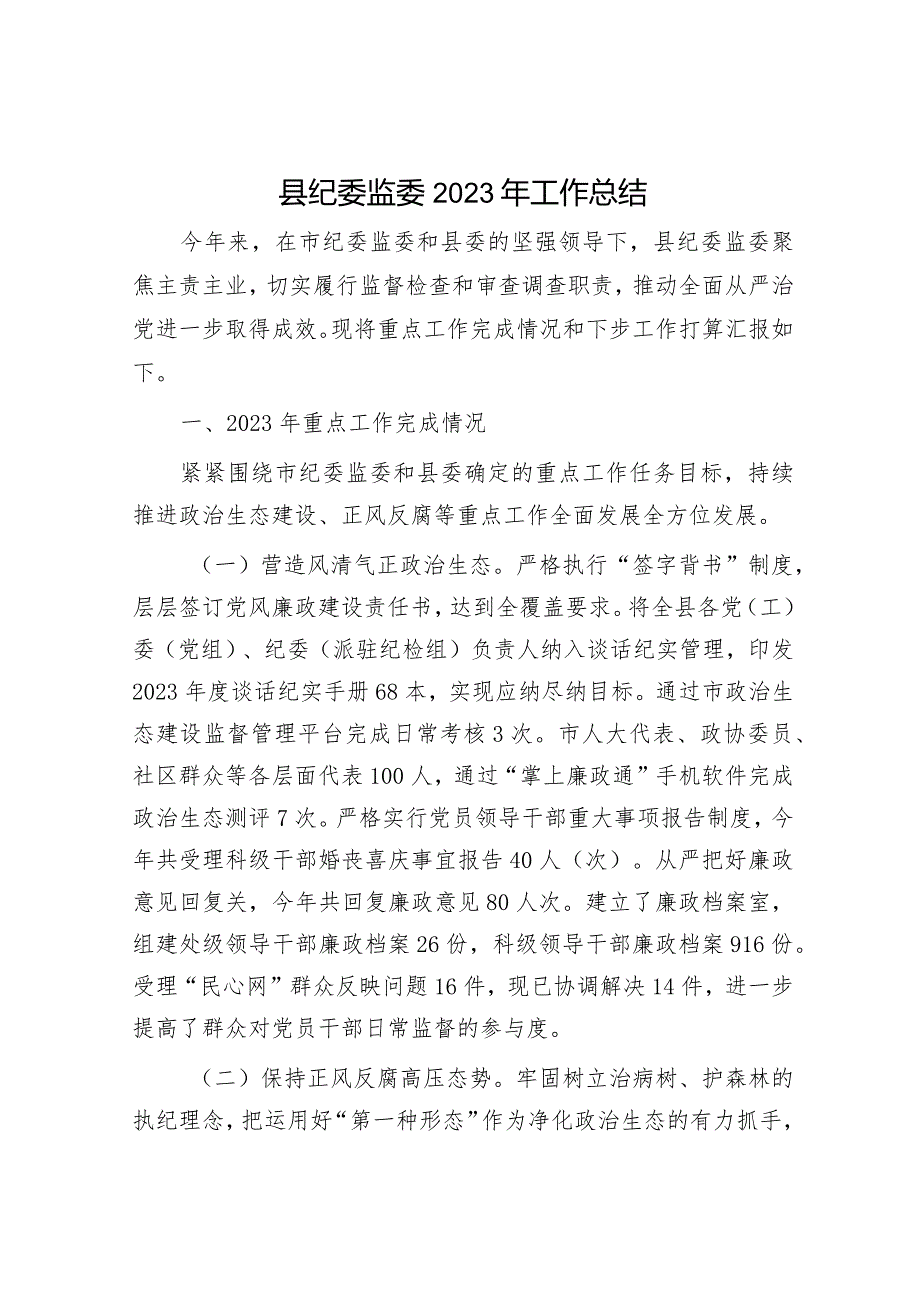 县纪委监委 2023 年工作总结
今年来，在市纪委监委和县委的坚强领导下，县纪委监委聚
焦主责主业，切实履行监督检查和审查调查职责，推动全面从严治
党进一步取得成效。现将重点工作完成情况和下步工作打算汇报如
下。
一、2023 年重点工作完成情况
紧紧围绕市纪委监委和县委确定的重点工作任务目标，持续
推进政治生态建设、正风反腐等重点工作全面发展全方位发展。
（一）营造风清气正政治生态。严格执行“签字背书”制度，
层层签订党风廉政建设责任书，达到全覆盖要求。将全县各党（工）
委（党组）、纪委（派驻纪检组）负责人纳入谈话纪实管理，印发
2023 年度谈话纪实手册 68 本，实现应纳尽纳目标。通过市政治生
态建设监督管理平台完成日常考核 3 次。市人大代表、政协委员、
社区群众等各层面代表 100 人，通过“掌上廉政通”手机软件完成
政治生态测评 7 次。严格实行党员领导干部重大事项报告制度，今
年共受理科级干部婚丧喜庆事宜报告 40 人（次）。从严把好廉政
意见回复关，今年共回复廉政意见 80 人次。建立了廉政档案室，
组建处级领导干部廉政档案 26 份，科级领导干部廉政档案 916 份。
受理“民心网”群众反映问题 16 件，现已协调解决 14 件，进一步
提高了群众对党员干部日常监督的参与度。
（二）保持正风反腐高压态势。牢固树立治病树、护森林的
执纪理念，把运用好“第一种形态”作为净化政治生态的有力抓手，